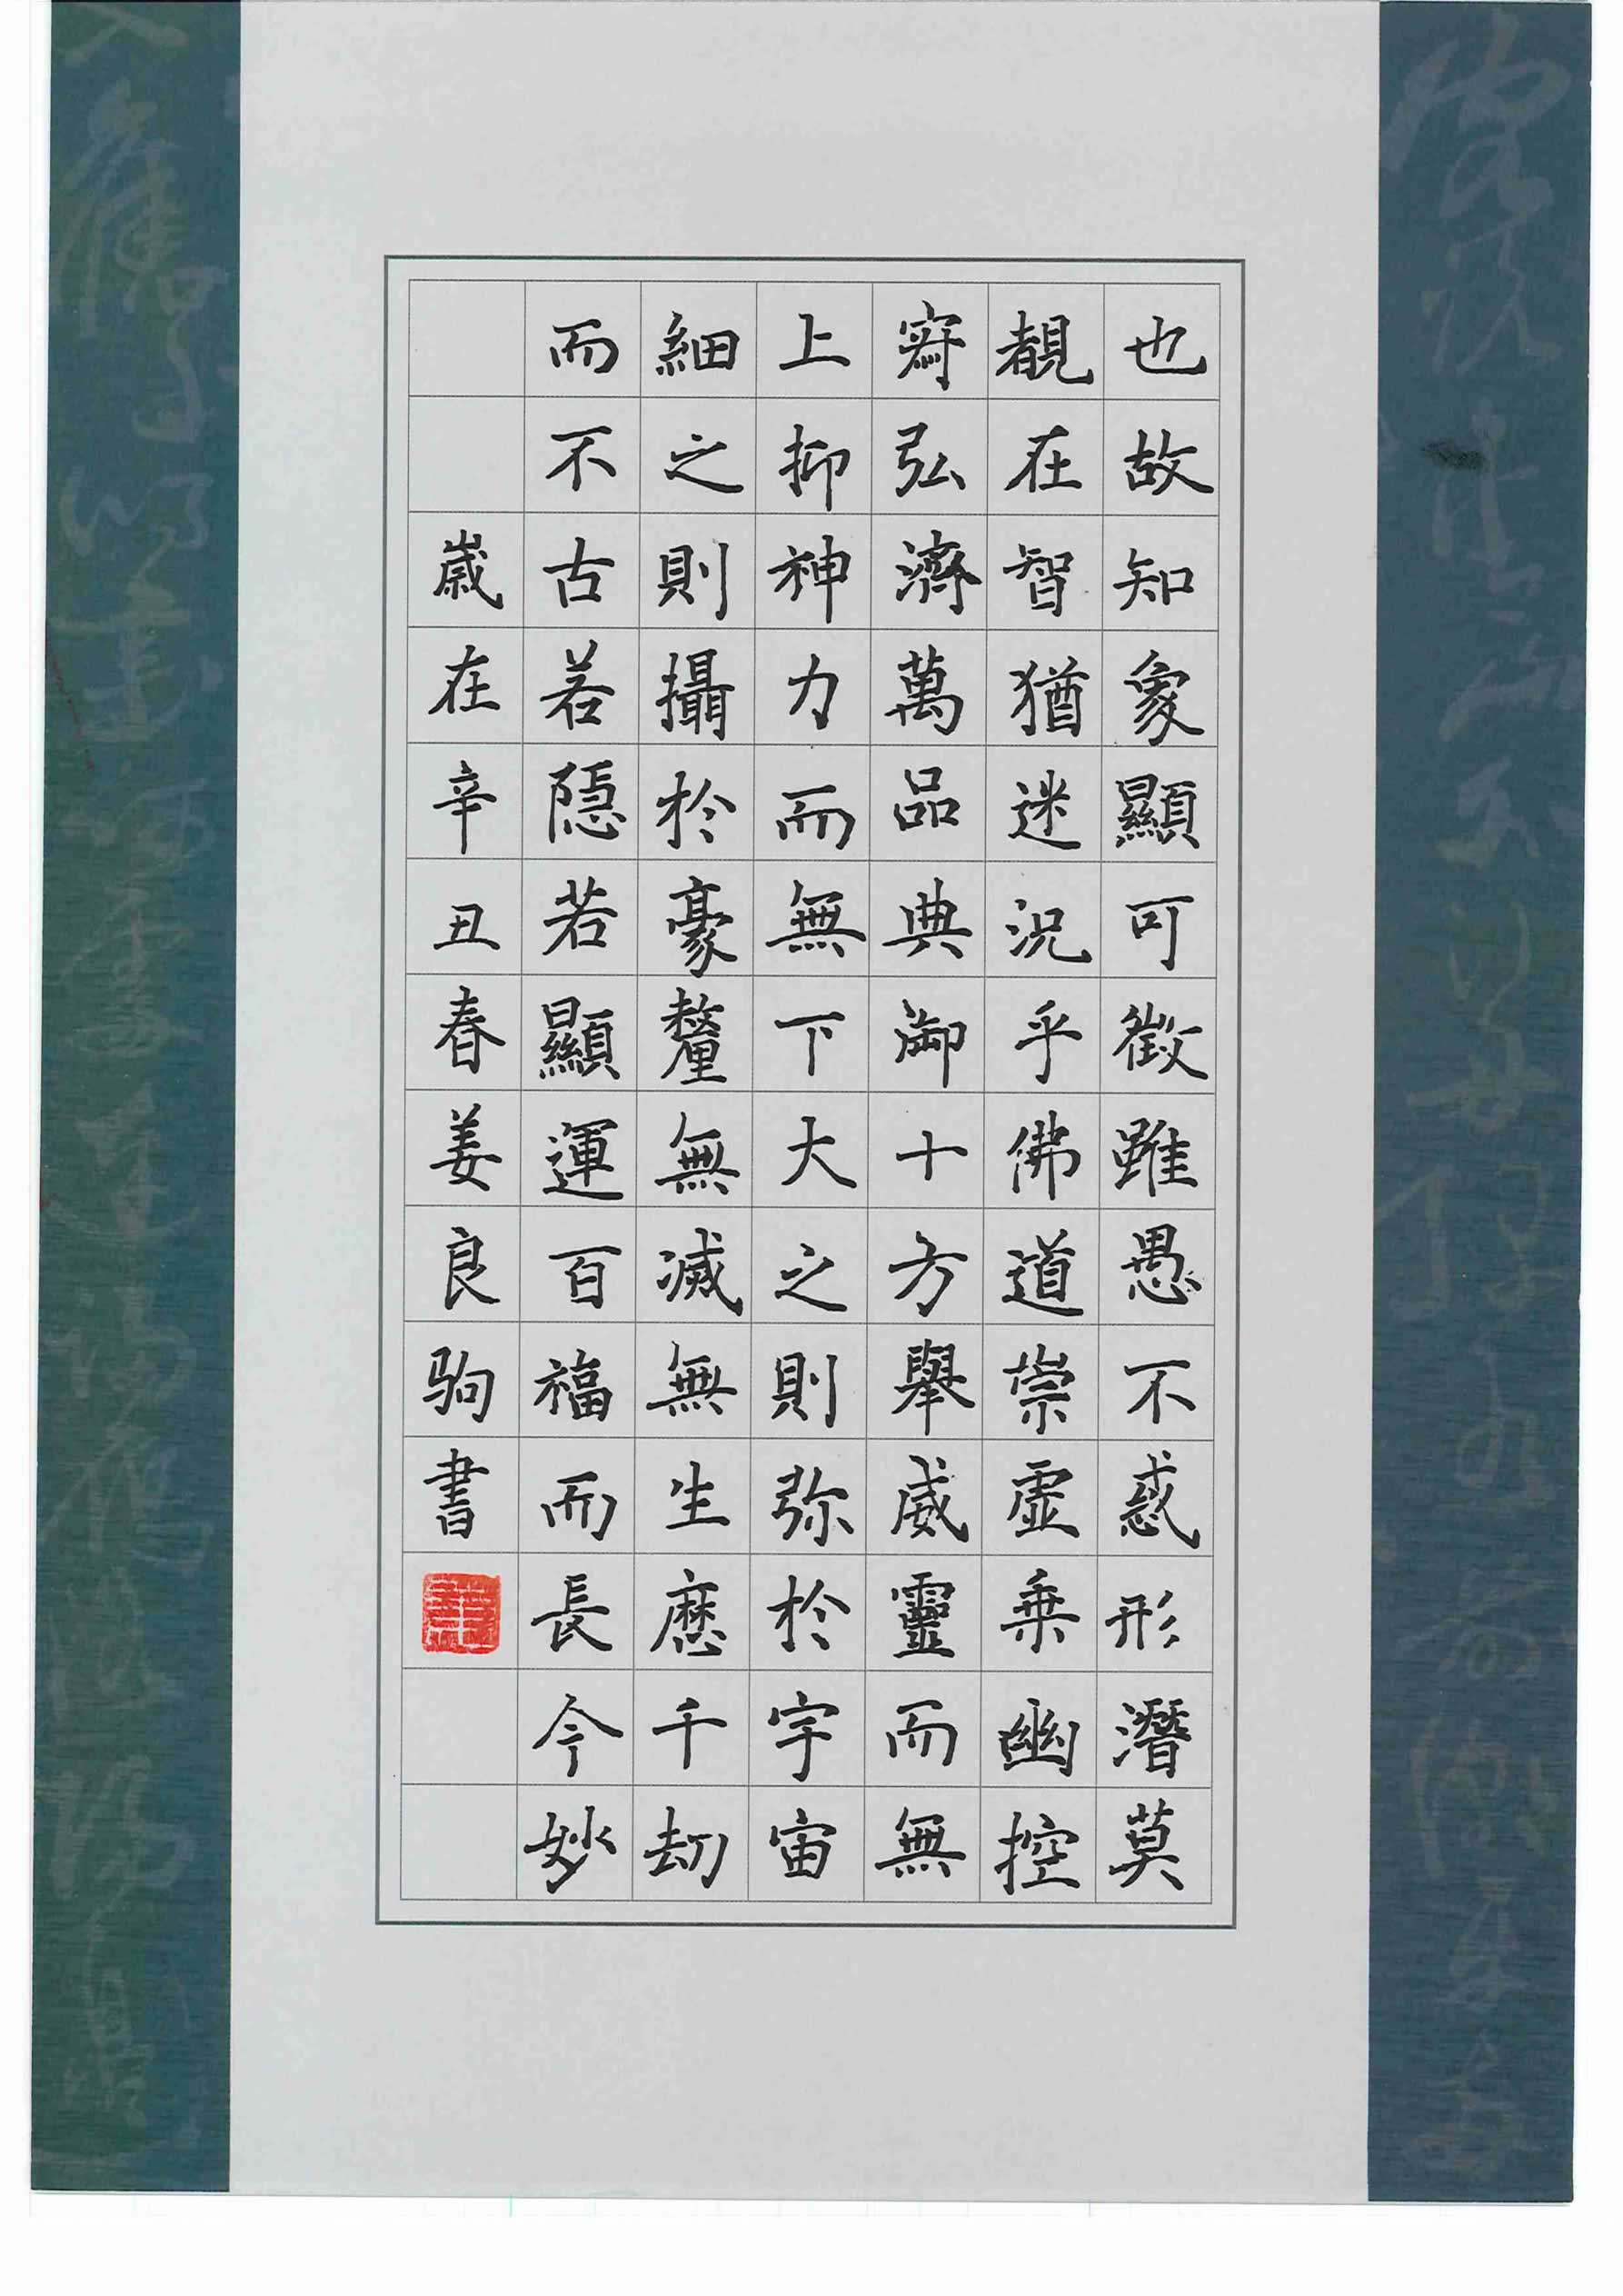 也故知象顯可徵雖愚不惑形潛莫
覩在智猶迷況乎佛道崇虛乗幽控
寂弘濟萬品典御十方舉威靈而無
上抑神力而無下大之則弥於宇宙
細之則攝於豪釐無滅無生歷千劫
而不古若隱若顯運百福而長今妙
歲在辛丑春姜良驹書